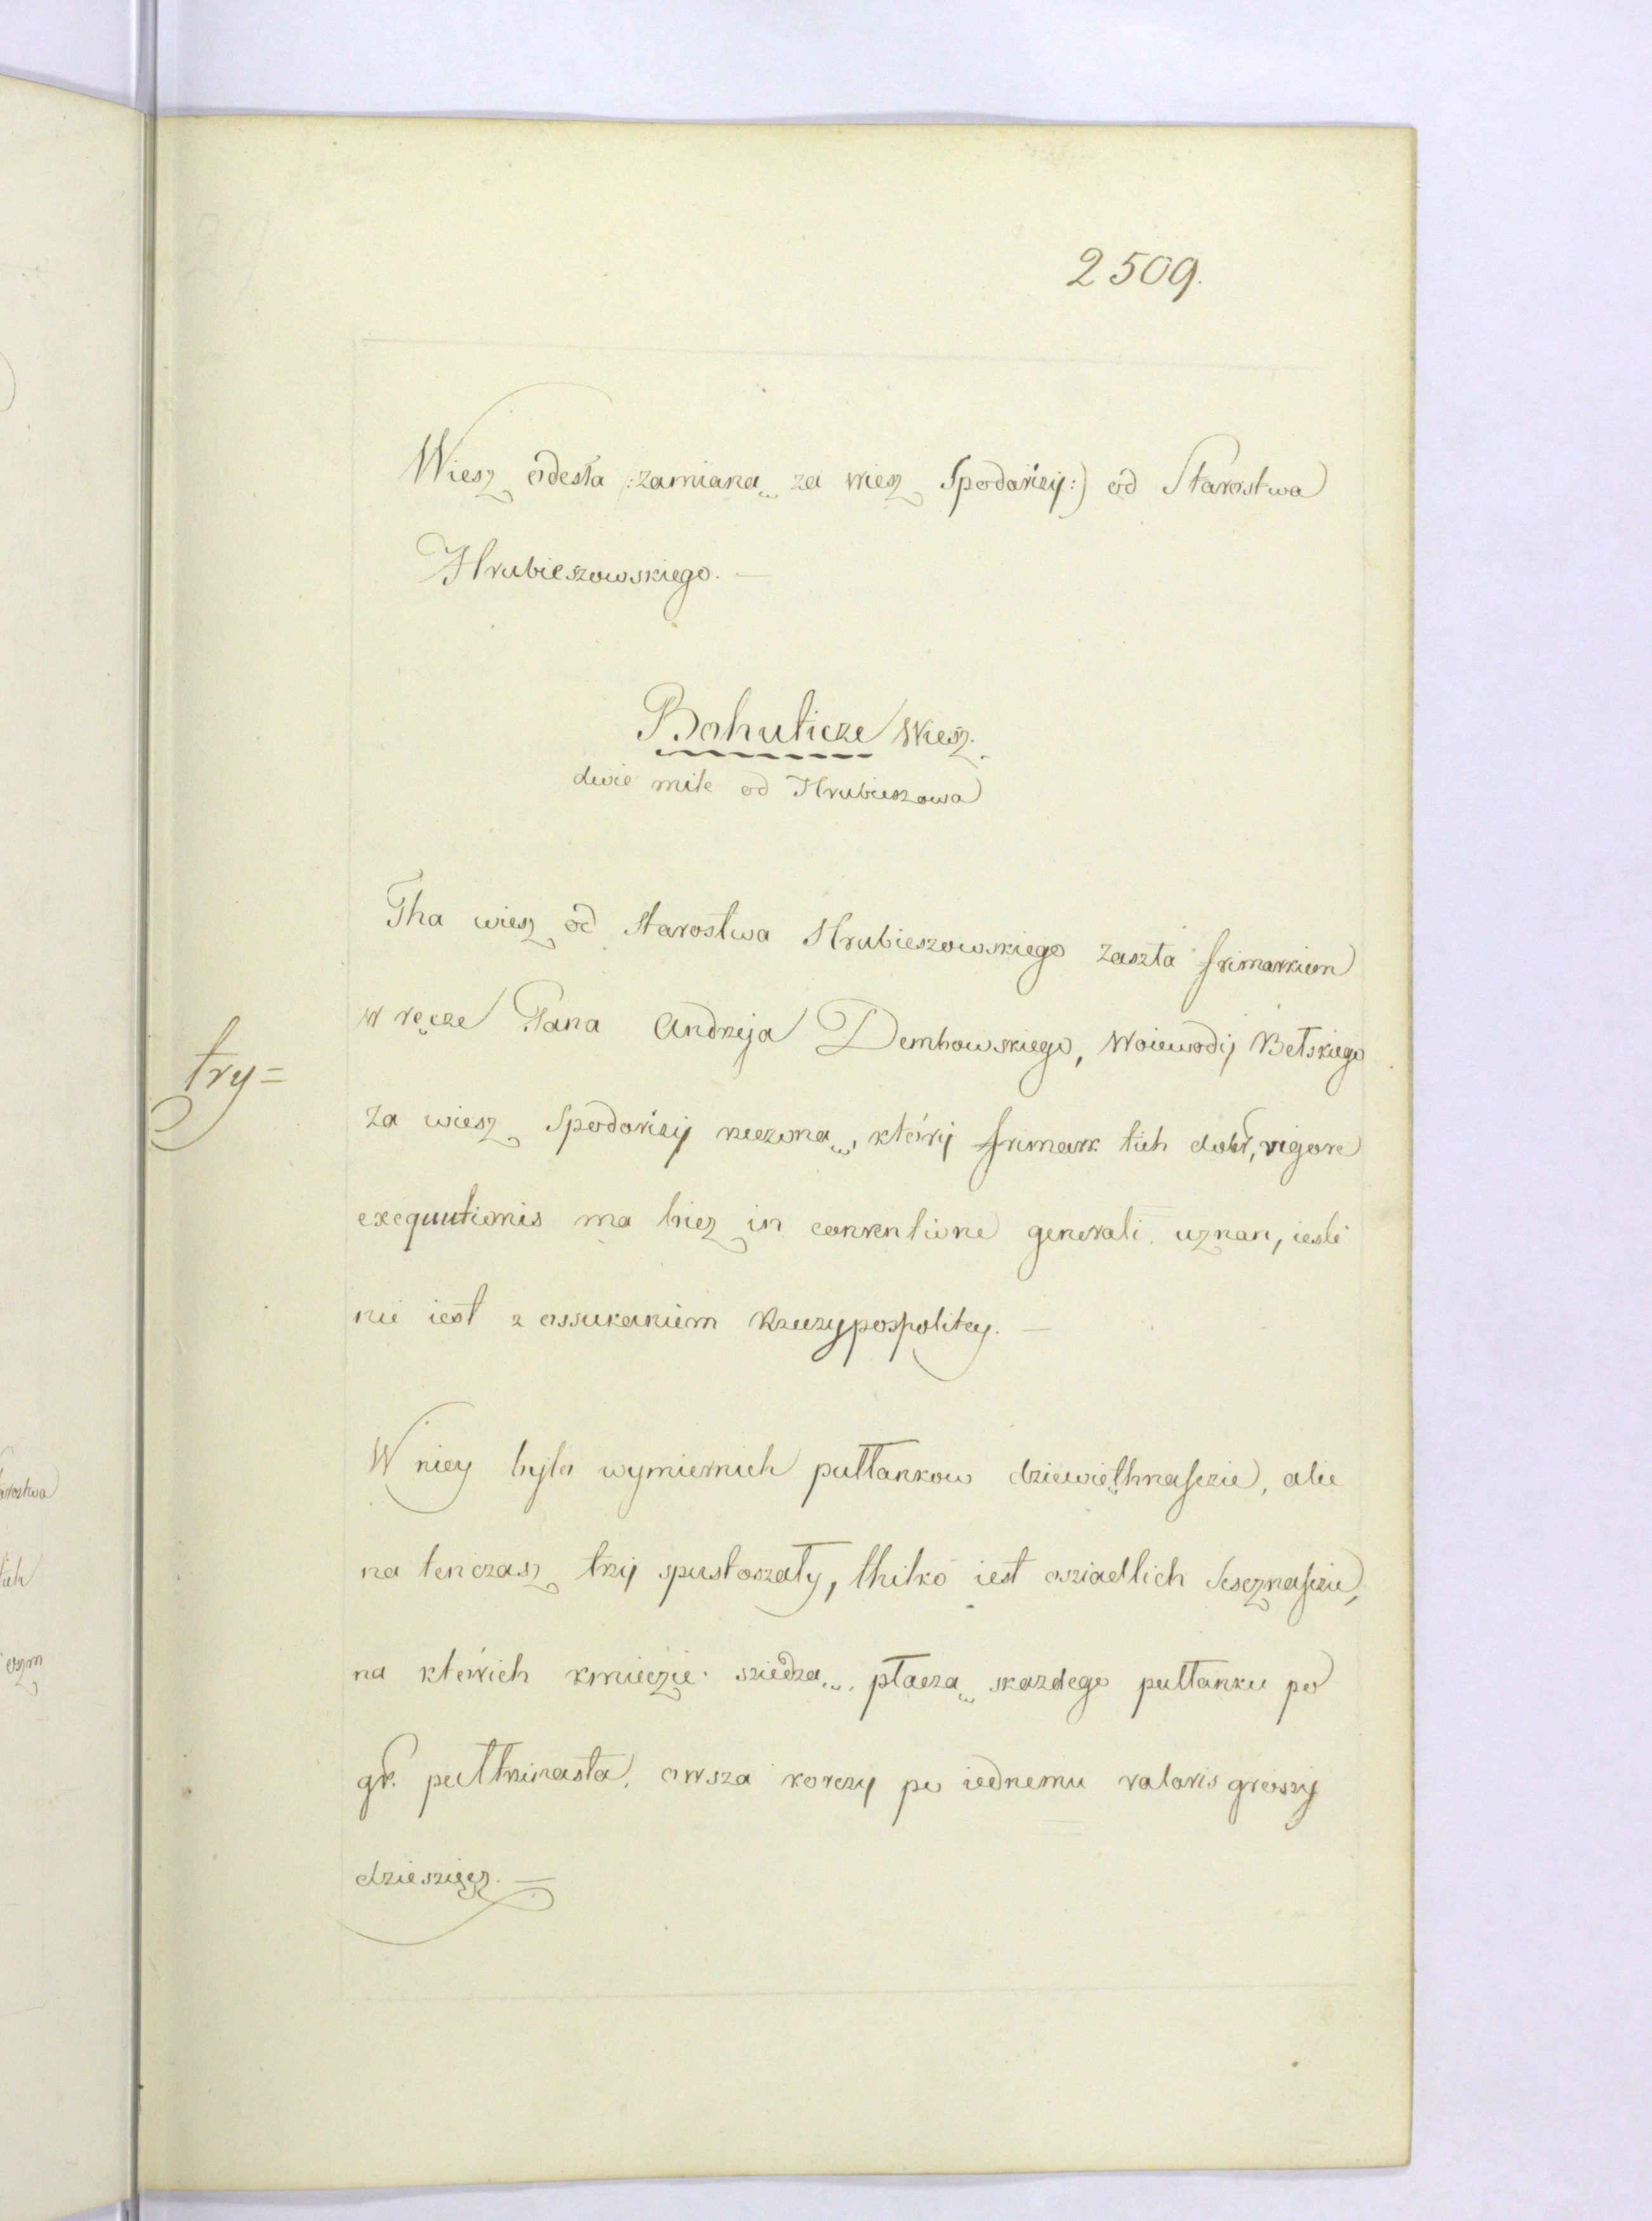 2509.
Wiesz odesła /:zamianą za wiesz Spodarizij:) od Starostwa
Hrubieszowskiego. —
Bohuticze Wiesz.
dwie mile od Hrubieszowa
Tha wiesz od Starostwa Hrubieszowskiego zaszła frimarkiem
w ręcze Pana Andrzeja Dembowskiego, Woiewodij Bełskiego
try=
za wiesz Spodarizij rzeczoną, którij frimark tich dobr, vigore
exequutionis ma bicz in conventione generali uznan, iesli
nie iest z ossukaniem Rzeczypospolitey. —
W niey było wymiernich pułłankow dziewięthnascie, alie
na tenczasz trzij spustoszały, thilko iest osziadlich Sesznascie,
na którich kmieczie sziedzą, płaczą skazdego pułłanku po
gr. pułtrzinasta, owsza korczy po iednemu valoris groszij
dzieszięcz. —
arostwa
tich
oszm